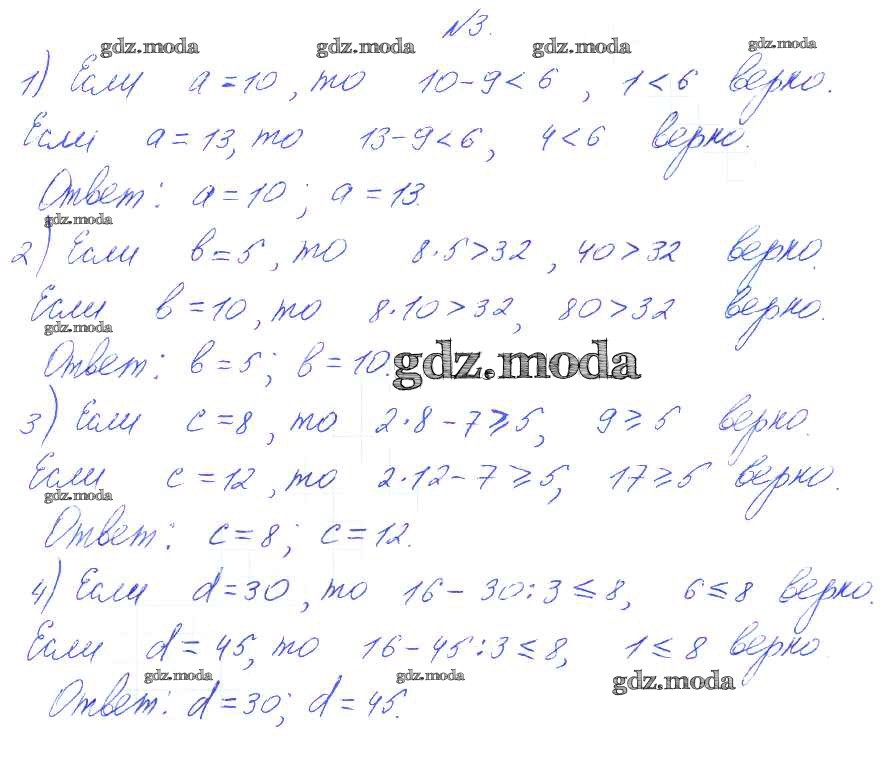 №3.
gdz.moda gdz.moda gdz.moda gdz.moda
1) Если a=10, то 10-9<6, 1<6 верно.
Если a=13, то 13-9<6, 4<6 верно.
Ответ: a=10; a=13.
gdz.moda
2) Если в=5, то 8·5>32, 40>32 верно.
Если в=10, то 8·10>32, 80>32 верно.
gdz.moda
Ответ: в=5; в=10.
gdz.moda
3) Если c=8, то 2·8-7≥5, 9≥5 верно.
Если c=12, то 2·12-7≥5, 17≥5 верно.
gdz.moda
Ответ: c=8; c=12.
4) Если d=30, то 16-30:3≤8, 6≤8 верно.
Если d=45, то 16-45:3≤8, 1≤8 верно
gdz.moda gdz.moda gdz.moda
Ответ: d=30; d=45.